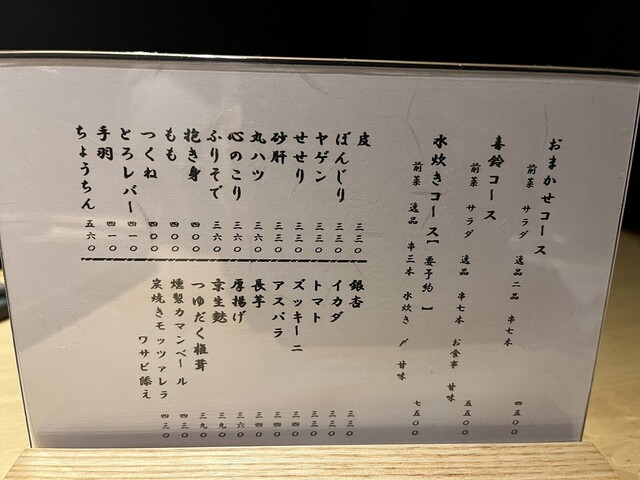 おまかせコース
前菜 サラダ 逸品二品 串七本 四五〇〇
喜鈴コース
前菜 サラダ 逸品 串七本 お食事 甘味 五五〇〇
水炊きコース【要予約】
前菜 逸品 串三本 水炊き 〆 甘味 七五〇〇
皮 三三〇
ぼんじり 三三〇
ヤゲン 三三〇
せせり 三三〇
砂肝 三三〇
丸ハツ 三六〇
心のこり 三六〇
ふりそで 三六〇
抱き身 四〇〇
もも 四〇〇
つくね 四〇〇
とろレバー 四一〇
手羽 四一〇
ちょうちん 五六〇
銀杏 三三〇
イカダ 三三〇
トマト 三三〇
ズッキーニ 三三〇
アスパラ 三四〇
長芋 三四〇
厚揚げ 三六〇
京生麩 三九〇
つゆだく椎茸 三九〇
燻製カマンベール 四三〇
炭焼きモッツァレラ
ワサビ添え 四三〇